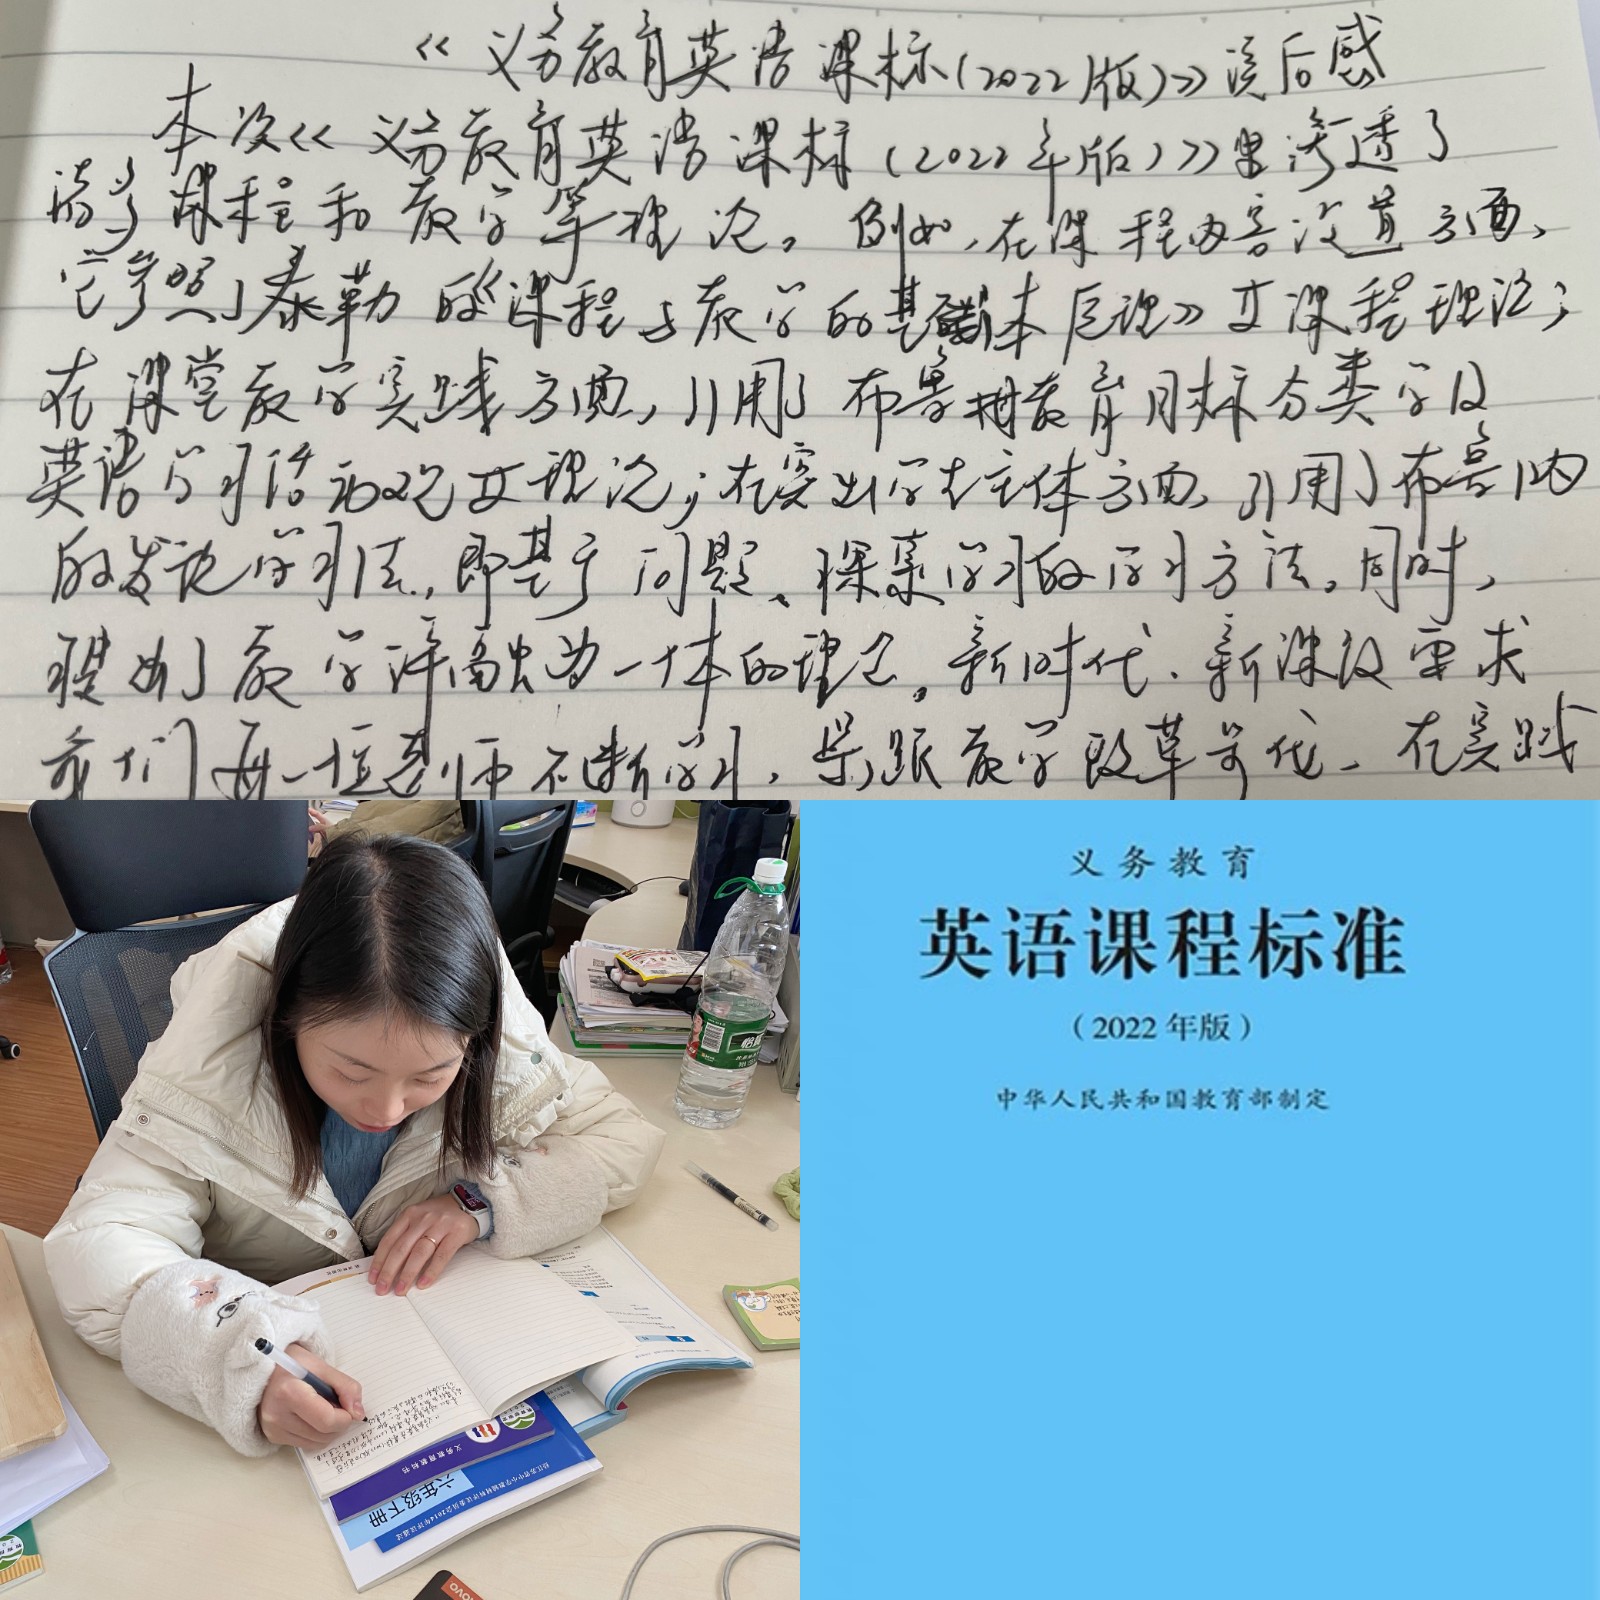 《义务教育英语课标(2022版)》读后感
本次《义务教育英语课标(2022年版)》里渗透了
诸多课程和教学等理论。例如,在课程内容设置方面,
它参照了泰勒的《课程与教学的基本原理》卄课程理论;
在课堂教学实践方面,引用了布鲁姆教育目标分类学及
英语学习活动观卄理论;在突出学生主体方面,引用了布鲁内
的发现学习法,即基于问题、探索学习的学习方法。同时,
提出了教学评融为一体的理念。新时代、新课改要求
我们每一位老师不断学习,紧跟教学改革步伐、在实践
义务教育教科书
六年级下册
义务教育
英语课程标准
(2022年版)
中华人民共和国教育部制定